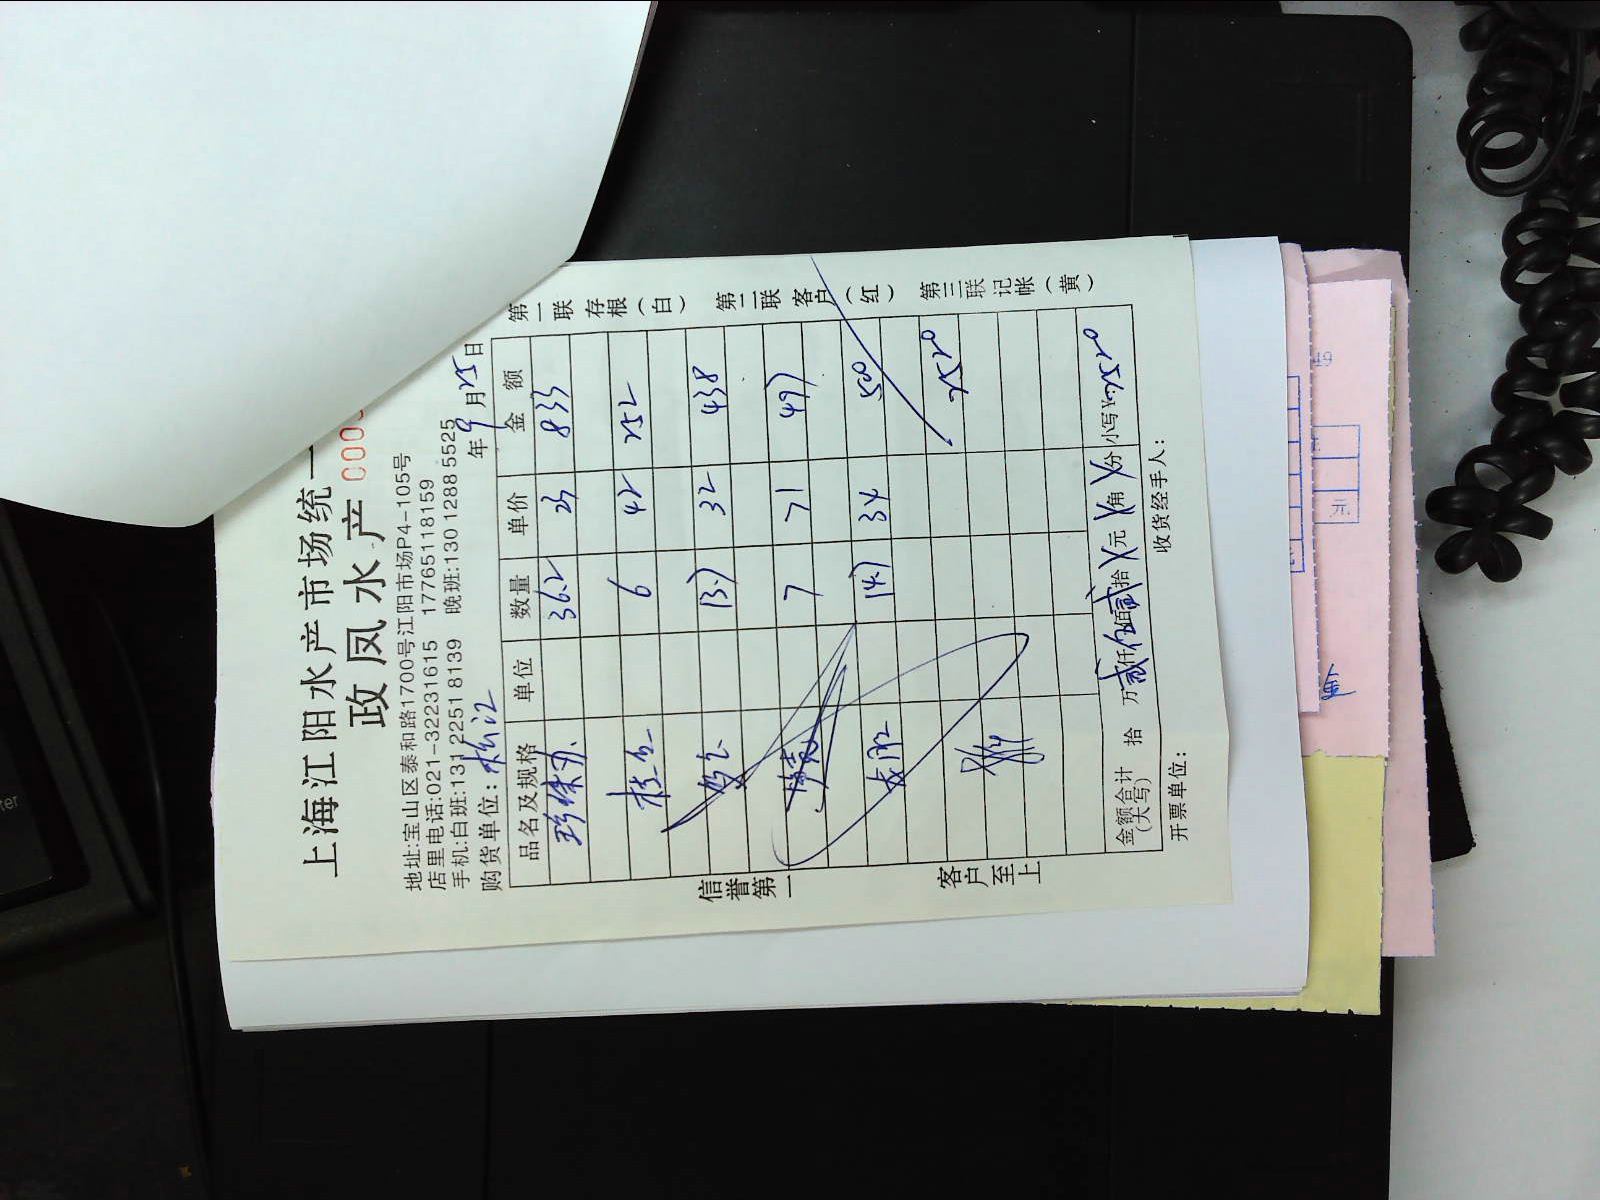 上海江阳水产市场统一
政凤水产 0000
地址:宝山区泰和路1700号江阳市场P4-105号
店里电话:021-32231615 17765118159
手机:白班:131 2251 8139 晚班:130 1288 5525
购货单位: 松江 年9月25日
品名及规格 单位 数量 单价 金额
珍珠斑 36.2 23 833
桂鱼 6 42 252
13.7 32 438
7 71 497
14.7 34 500
2520
金额合计(大写) 拾 万 贰仟 伍佰 贰拾 元 角 分 小写¥:2520
开票单位: 收货经手人:
信誉第一
客户至上
第一联存根(白) 第二联客户(红) 第三联记帐(黄)
元